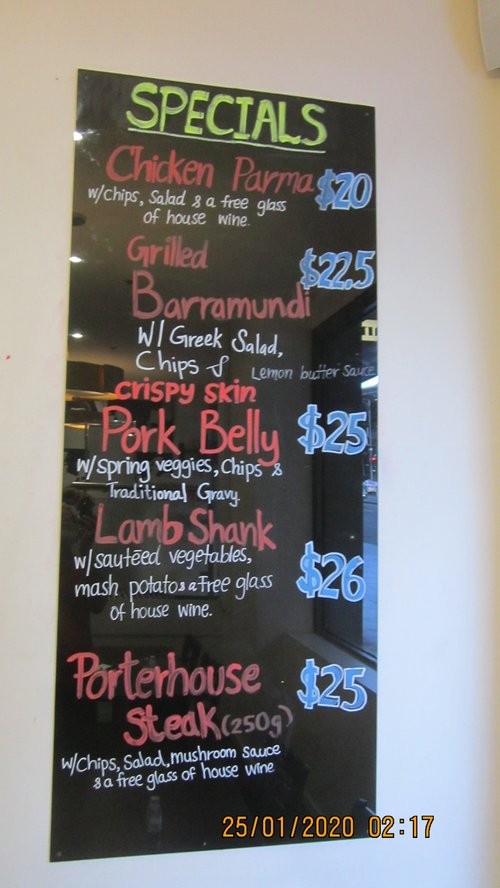 SPECIALS
Chicken Parma $20
w/Chips, Salad & a free glass
of house wine.
Grilled
$22.5
Barramundi
W/ Greek Salad,
Chips &
Lemon butter sauce
crispy skin
Pork Belly $25
w/spring veggies, Chips &
Traditional Gravy.
Lamb Shank
w/sautēed vegetables,
$26
mash potato & a free glass
of house wine.
Porterhouse $25
Steak (250g)
w/Chips, Salad, mushroom sauce
& a free glass of house wine
25/01/2020 02:17